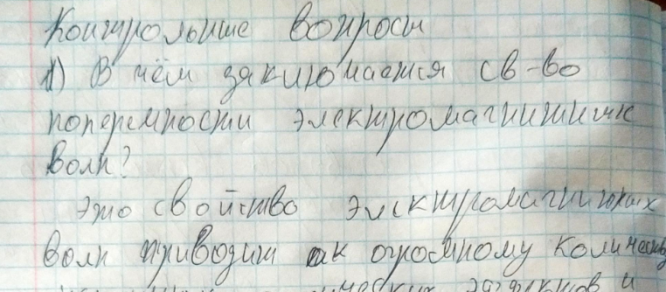 Контрольные вопросы
1) В чём заключается св-во
поперечности электромагнитных
волн?
Это свойство электромагнитных
волн приводит к огромному количеству
эффектов и